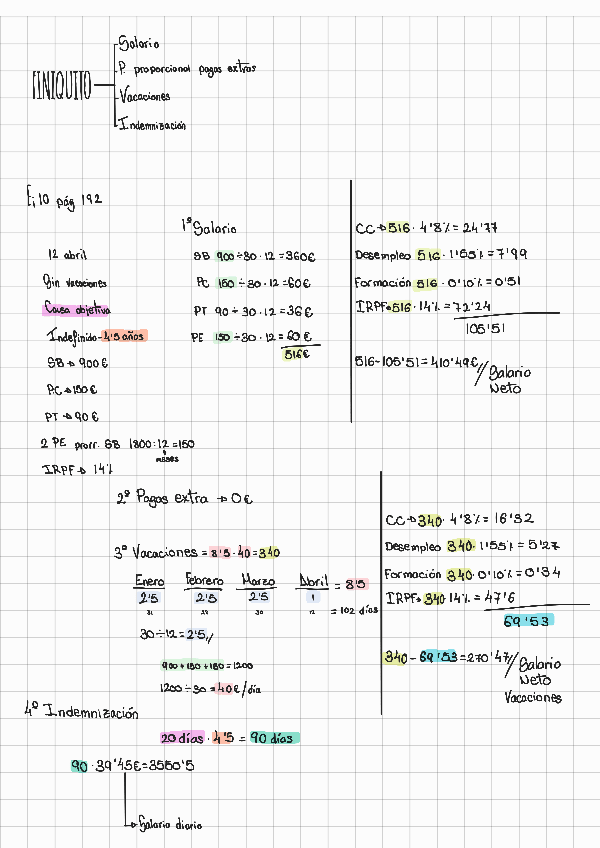 FINIQUITO
Salario
P. proporcional pagas extras
Vacaciones
Indemnización
Ej 10 pág 192
12 abril
Sin vacaciones
Causa objetiva
Indefinido → 4'5 años
SB → 900€
PC → 150€
PT → 90€
2 PE prorr. SB 1800:12 = 150
meses
IRPF → 14%
1º Salario
SB 900 ÷ 30 · 12 = 360€
PC 150 ÷ 30 · 12 = 60€
PT 90 ÷ 30 · 12 = 36€
PE 150 ÷ 30 · 12 = 60€
516€
CC → 516 · 4'8% = 24'77
Desempleo 516 · 1'55% = 7'99
Formación 516 · 0'10% = 0'51
IRPF → 516 · 14% = 72'24
105'51
516 - 105'51 = 410'49€ // Salario
Neto
2º Pagas extra → 0€
3º Vacaciones = 8'5 · 40 = 340
Enero Febrero Marzo Abril = 8'5
2'5 2'5 2'5 1
31 30 12 = 102 días
30 ÷ 12 = 2'5 //
900 + 150 + 150 = 1200
1200 ÷ 30 = 40€/día
CC → 340 · 4'8% = 16'32
Desempleo 340 · 1'55% = 5'27
Formación 340 · 0'10% = 0'34
IRPF → 340 · 14% = 47'6
69'53
340 - 69'53 = 270'47 // Salario
Neto
Vacaciones
4º Indemnización
20 días · 4'5 = 90 días
90 · 39'45€ = 3550'5
Salario diario